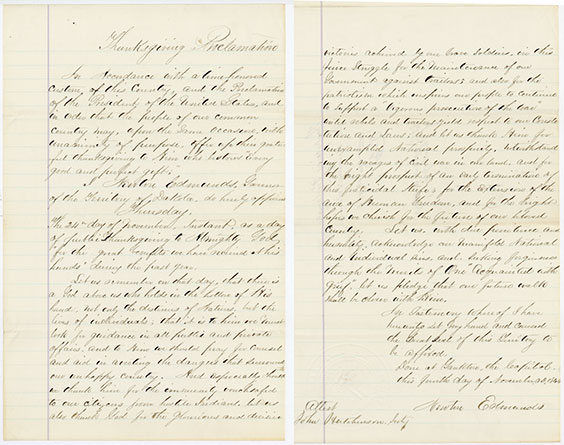 Thanksgiving Proclamation
In Accordance with a time honored
Custom, of this Country, and the Proclamation
of the President of the United States, and
in order that the people of our common
Country may, upon the same Occasion, with
unanimity of purpose, offer up their
thanksgiving to Him who bestows every
good and perfect gift,
I Newton Edmunds, Governor
of the Territory of Dakota, do hereby appoint
Thursday.
The 24th day of November Instant, as a day
of public Thanksgiving to Almighty God,
for the great benefits we have received at his
hands during the past year.
Let us remember on that day, that there is
a God above us who holds in the hollow of His
hand, not only the destinies of Nations, but the
lives of individuals, that it is to him we must
look for guidance in all public and private
affairs, and to Him we should pray for Counsel
and aid in averting the dangers that surround
our unhappy Country. And especially should
we thank Him for the community vouchsafed
to our Citizens from hostile Indians, let us
also thank God for the glorious and decisive
victories achieved by our brave soldiers, in this
fierce struggle for the Maintenance of our
Government against traitors and also for the
patriotism which inspires our people to continue
to support a vigorous prosecution of the War
until rebels and traitors yield respect to our Consti
tution and Laws, and let us thank Him for
unexampled National prosperity, notwithstand
ing the ravages of Civil war in our land, and for
the bright prospect of an early termination of
this fratricidal strife, for the Extension of the
area of Human freedom, and for the bright
hopes we cherish for the future of our beloved
Country. Let us, with due penitence and
humility, Acknowledge our Manifold National
and Individual sins, and, seeking forgiveness
through the Merits of One Acquainted with
grief, let us pledge that our future walk
shall be closer with Him.
In Testimony whereof I have
hereunto Set my hand and Caused
the Great Seal of this Territory to
be affixed.
Done at Yankton, the Capital
this fourth day of November
Newton Edmunds
Attest
John Hutchinson, Secty